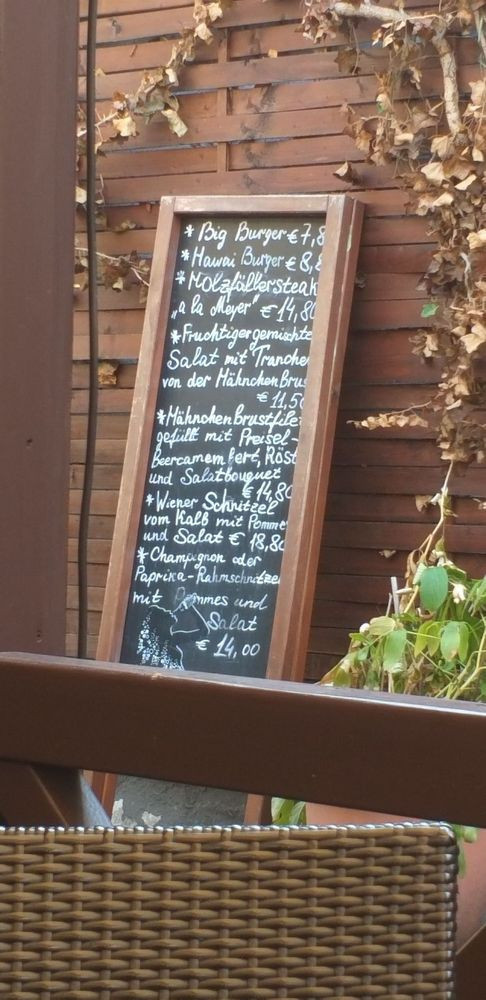 * Big Burger € 7,8
* Hawai Burger € 8,8
* Holzfällersteak
„a la Meyer" € 14,80
* Fruchtiger gemischte
Salat mit Tranchen
von der Hähnchen Brus
€ 11,50
* Hähnchen Brustfile
gefüllt mit Preisel-
beercamembert, Röst
und Salatbouquet
€ 14,80
* Wiener Schnitzel
vom Kalb mit Pommes
und Salat € 18,80
* Champignon oder
Paprika-Rahmschnitzel
mit Pommes und
Salat
€ 14,00